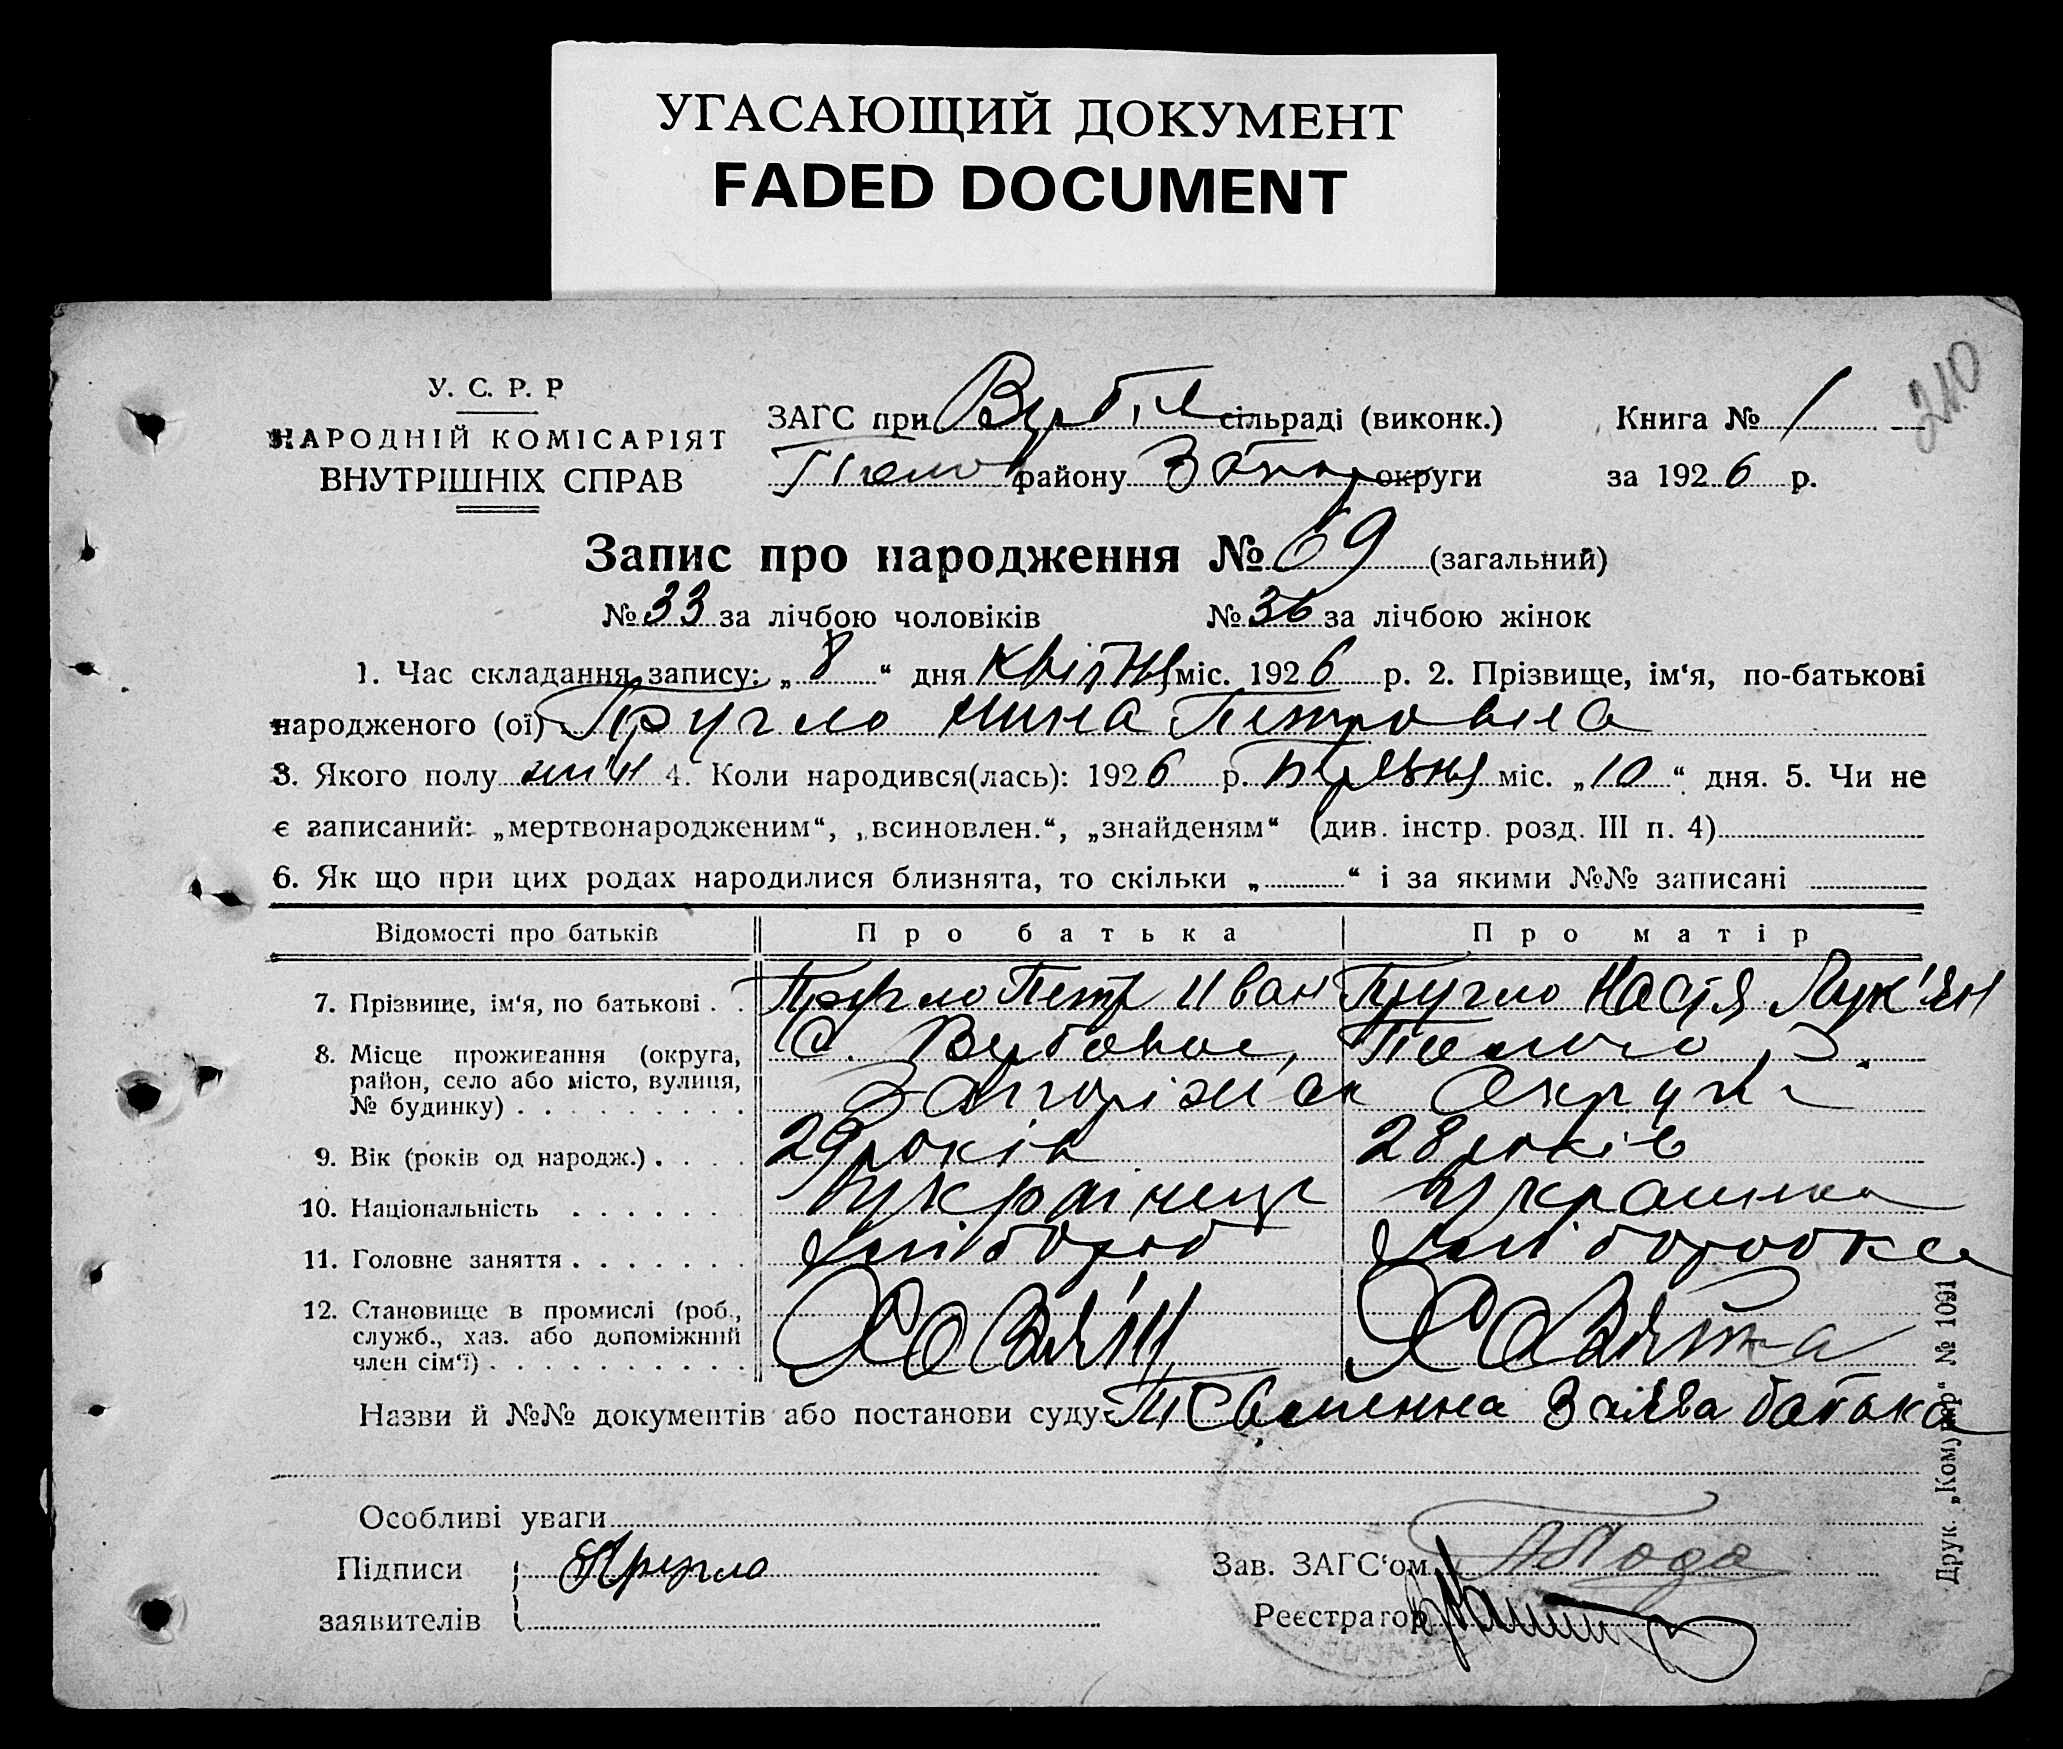 УГАСАЮЩИЙ ДОКУМЕНТ
FADED DOCUMENT
210
У. С. Р. Р
НАРОДНІЙ КОМІСАРІЯТ
ВНУТРІШНІХ СПРАВ
ЗАГС при сільраді (виконк.)
району Запор округи
Книга № 1
за 1926 р.
Запис про народження № 69 (загальний)
№ 33 за лічбою чоловіків № 36 за лічбою жінок
1. Час складання запису: „8“ дня Квітня міс. 1926 р. 2. Прізвище, ім‘я, по-батькові
народженого (ої) Пругло Нина Петровна
3. Якого полу жін 4. Коли народився(лась): 1926 р. міс. „10“ дня. 5. Чи не
є записаний: „мертвонародженим“, „всиновлен.“, „знайденям“ (див. інстр. розд. III п. 4)
6. Як що при цих родах народилися близнята, то скільки „ “ і за якими №№ записані
Відомості про батьків Про батька Про матір
7. Прізвище, ім‘я, по батькові . . Пругло Петр Иван Пругло Настя Лук'ян
8. Місце проживання (округа, район, село або місто, вулиця, № будинку) . . . . . . . . . С. Вербовое,
Запоріжск Округи
9. Вік (років од народж.) . . . . 29 років 28 років
10. Національність . . . . . . Українец Украинка
11. Головне заняття . . . . . . . хлібороб хліборобка
12. Становище в промислі (роб., служб., хаз. або допоміжний член сім‘ї) . . . . . . . . . . Хозяїн Хозяйка
Назви й №№ документів або постанови суду Заява батька
Особливі уваги
Підписи заявителів Пругло
Зав. ЗАГС‘ом
Реєстратор
Друк. „Комунар“ № 1091